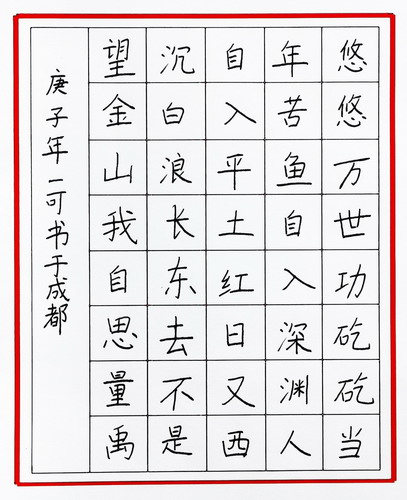 悠悠万世功矻矻当
年苦鱼自入深渊人
自入平土红日又西
沉白浪长东去不是
望金山我自思量禹
庚子年一可书于成都